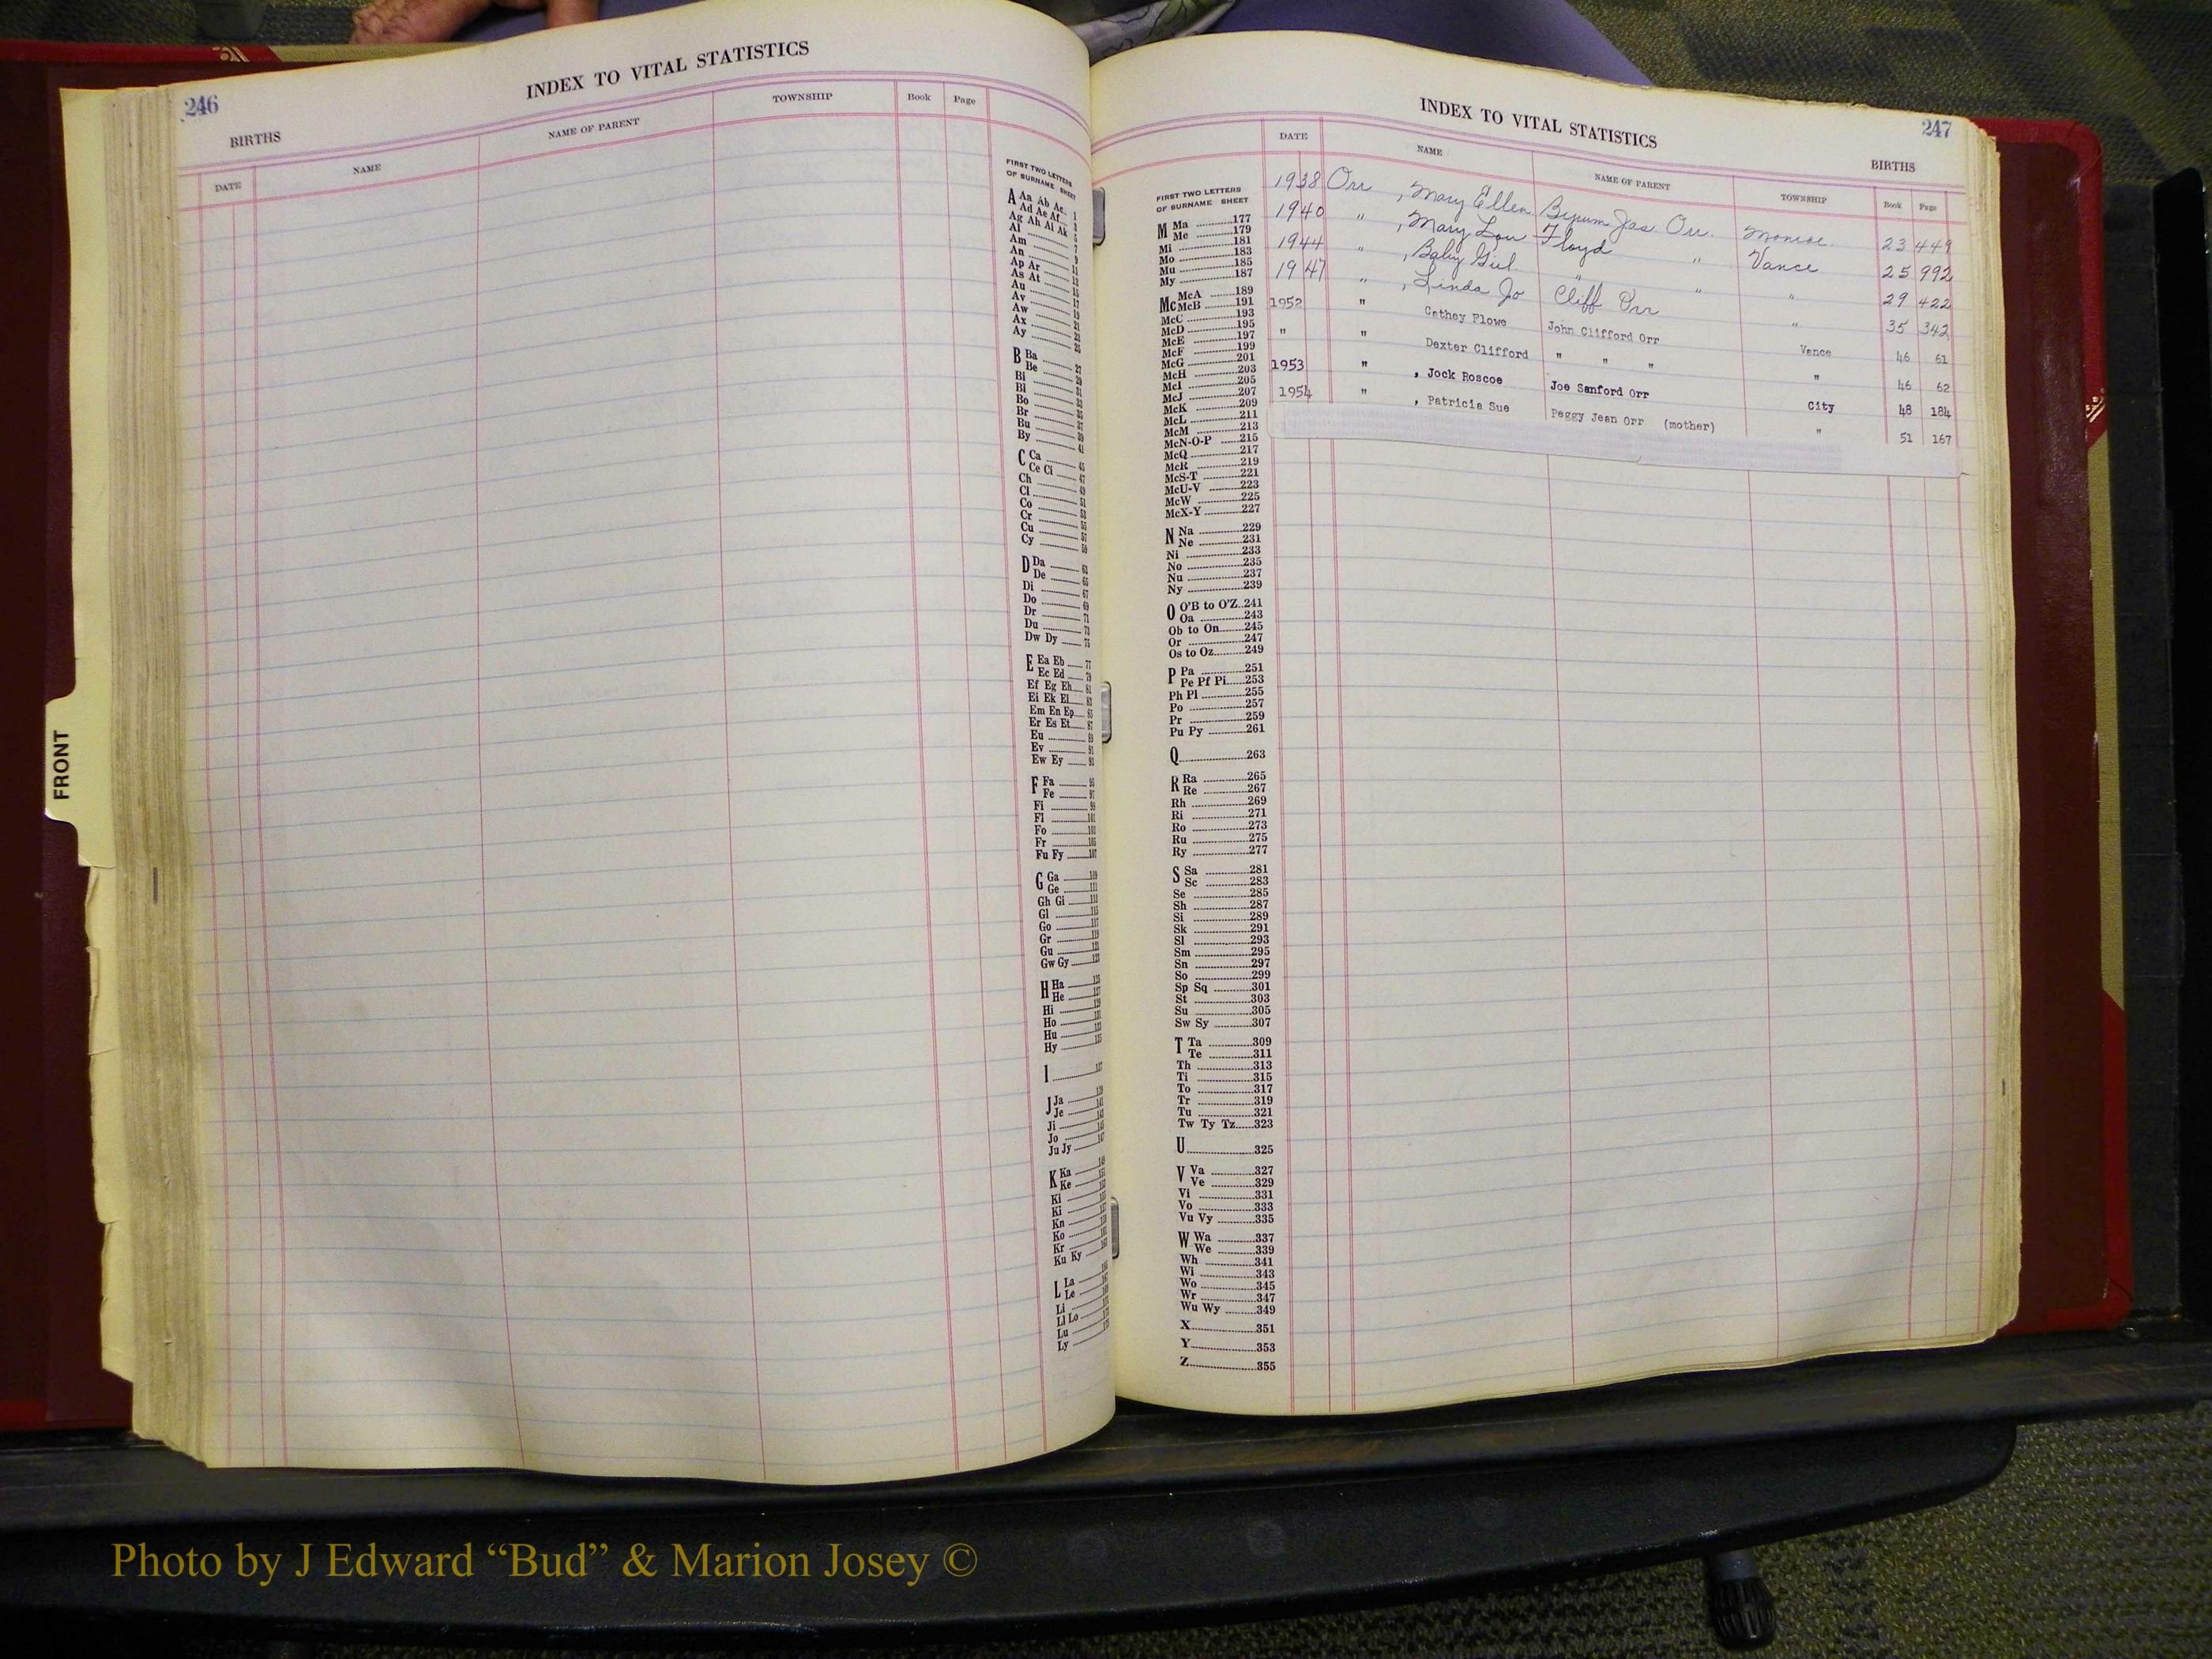 246
INDEX TO VITAL STATISTICS
BIRTHS
DATE NAME NAME OF PARENT TOWNSHIP Book Page
FIRST TWO LETTERS
OF SURNAME SHEET
A Aa Ab Ac
Ad Ae Af
Ag Ah Ai Ak
Al
Am
An
Ap Ar
As At
Au
Av
Aw
Ax
Ay
B Ba
Be
Bi
Bl
Bo
Br
Bu
By
C Ca
Ce Ci
Ch
Cl
Co
Cr
Cu
Cy
D Da
De
Di
Do
Dr
Du
Dw Dy
E Ea Eb
Ec Ed
Ef Eg Eh
Ei Ek El
Em En Ep
Er Es Et
Eu
Ev
Ew Ey
F Fa
Fe
Fi
Fl
Fo
Fr
Fu Fy
G Ga
Ge
Gh Gi
Gl
Go
Gr
Gu
Gw Gy
H Ha
He
Hi
Ho
Hu
Hy
I
J Ja
Je
Ji
Jo
Ju Jy
K Ka
Ke
Ki
Ki
Kn
Ko
Kr
Ku Ky
L La
Le
Li
Ll Lo
Lu
Ly
FRONT
INDEX TO VITAL STATISTICS
247
BIRTHS
DATE NAME NAME OF PARENT TOWNSHIP Book Page
1938 Orr , Mary Ellen Byrum Jas. Orr. Monroe. 23 449
1940 " , Mary Lou Floyd " Vance 25 992
1944 " , Baby Girl. " " " 29 422
1947 " , Linda Jo Cliff Orr " 35 342
1952 " Cathey Flowe John Clifford Orr Vance 46 61
" " Dexter Clifford " " " " 46 62
1953 " , Jock Roscoe Joe Sanford Orr City 48 184
1954 " , Patricia Sue Peggy Jean Orr (mother) " 51 167
FIRST TWO LETTERS
OF SURNAME SHEET
M Ma 177
Me 179
Mi 181
Mo 183
Mu 185
My 187
Mc McA 189
McB 191
McC 193
McD 195
McE 197
McF 199
McG 201
McH 203
McI 205
McJ 207
McK 209
McL 211
McM 213
McN-O-P 215
McQ 217
McR 219
McS-T 221
McU-V 223
McW 225
McX-Y 227
N Na 229
Ne 231
Ni 233
No 235
Nu 237
Ny 239
O O'B to O'Z 241
Oa 243
Ob to On 245
Or 247
Os to Oz 249
P Pa 251
Pe Pf Pi 253
Ph Pl 255
Po 257
Pr 259
Pu Py 261
Q 263
R Ra 265
Re 267
Rh 269
Ri 271
Ro 273
Ru 275
Ry 277
S Sa 281
Sc 283
Se 285
Sh 287
Si 289
Sk 291
Sl 293
Sm 295
Sn 297
So 299
Sp Sq 301
St 303
Su 305
Sw Sy 307
T Ta 309
Te 311
Th 313
Ti 315
To 317
Tr 319
Tu 321
Tw Ty Tz 323
U 325
V Va 327
Ve 329
Vi 331
Vo 333
Vu Vy 335
W Wa 337
We 339
Wh 341
Wi 343
Wo 345
Wr 347
Wu Wy 349
X 351
Y 353
Z 355
Photo by J Edward “Bud” & Marion Josey ©